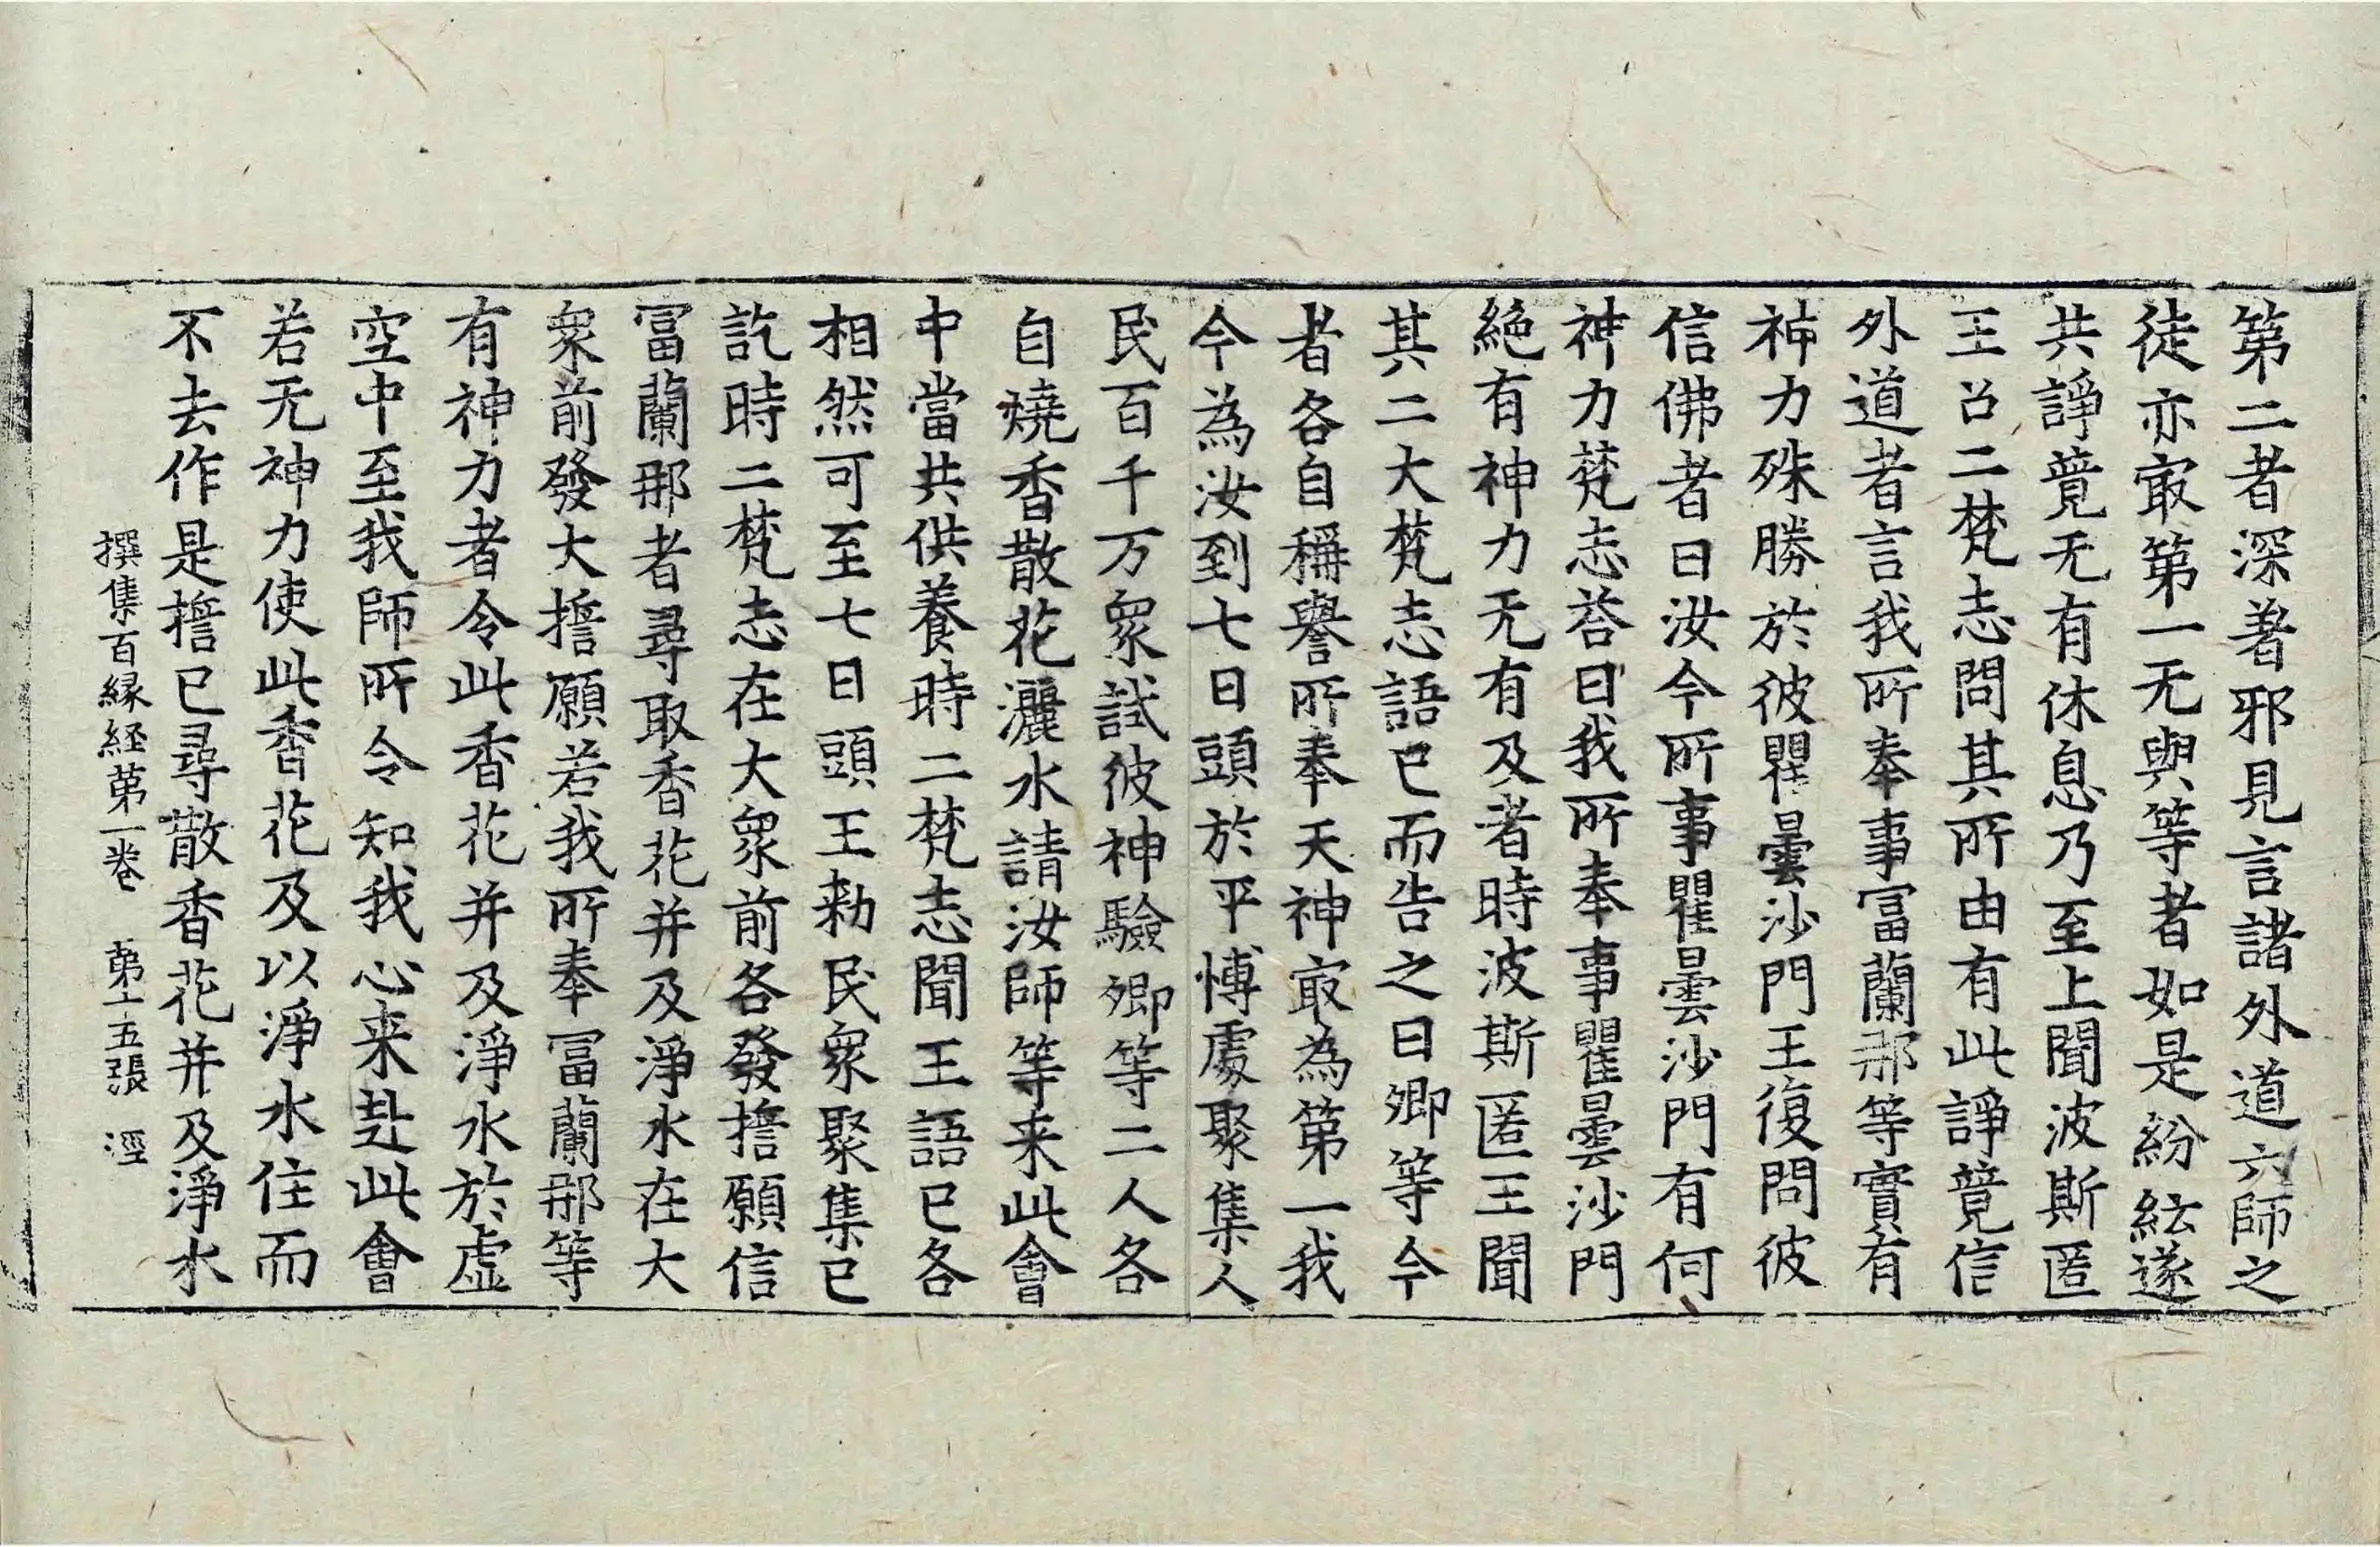 第二者深著邪見言諸外道六師之
徒亦㝡第一无與等者如是紛紜遂
共諍竟无有休息乃至上聞波斯匿
王召二梵志問其所由有此諍竟信
外道者言我所奉事冨蘭那等實有
神力殊勝於彼瞿曇沙門王復問彼
信佛者曰汝今所事瞿曇沙門有何
神力梵志荅曰我所奉事瞿曇沙門
絶有神力无有及者時波斯匿王聞
其二大梵志語已而告之曰卿等今
者各自稱譽所奉天神㝡為第一我
今為汝到七日頭於平愽處聚集人
民百千万衆試彼神驗卿等二人各
自燒香散花灑水請汝師等来此會
中當共供養時二梵志聞王語已各
相然可至七日頭王勑民衆聚集已
訖時二梵志在大衆前各發擔願信
冨蘭那者尋取香花并及淨水在大
衆前發大擔願若我所奉冨蘭那等
有神力者令此香花并及淨水於虛
空中至我師所令知我心来赴此會
若无神力使此香花及以淨水住而
不去作是擔已尋散香花并及淨水
撰集百縁経第一卷　第十五張　涇